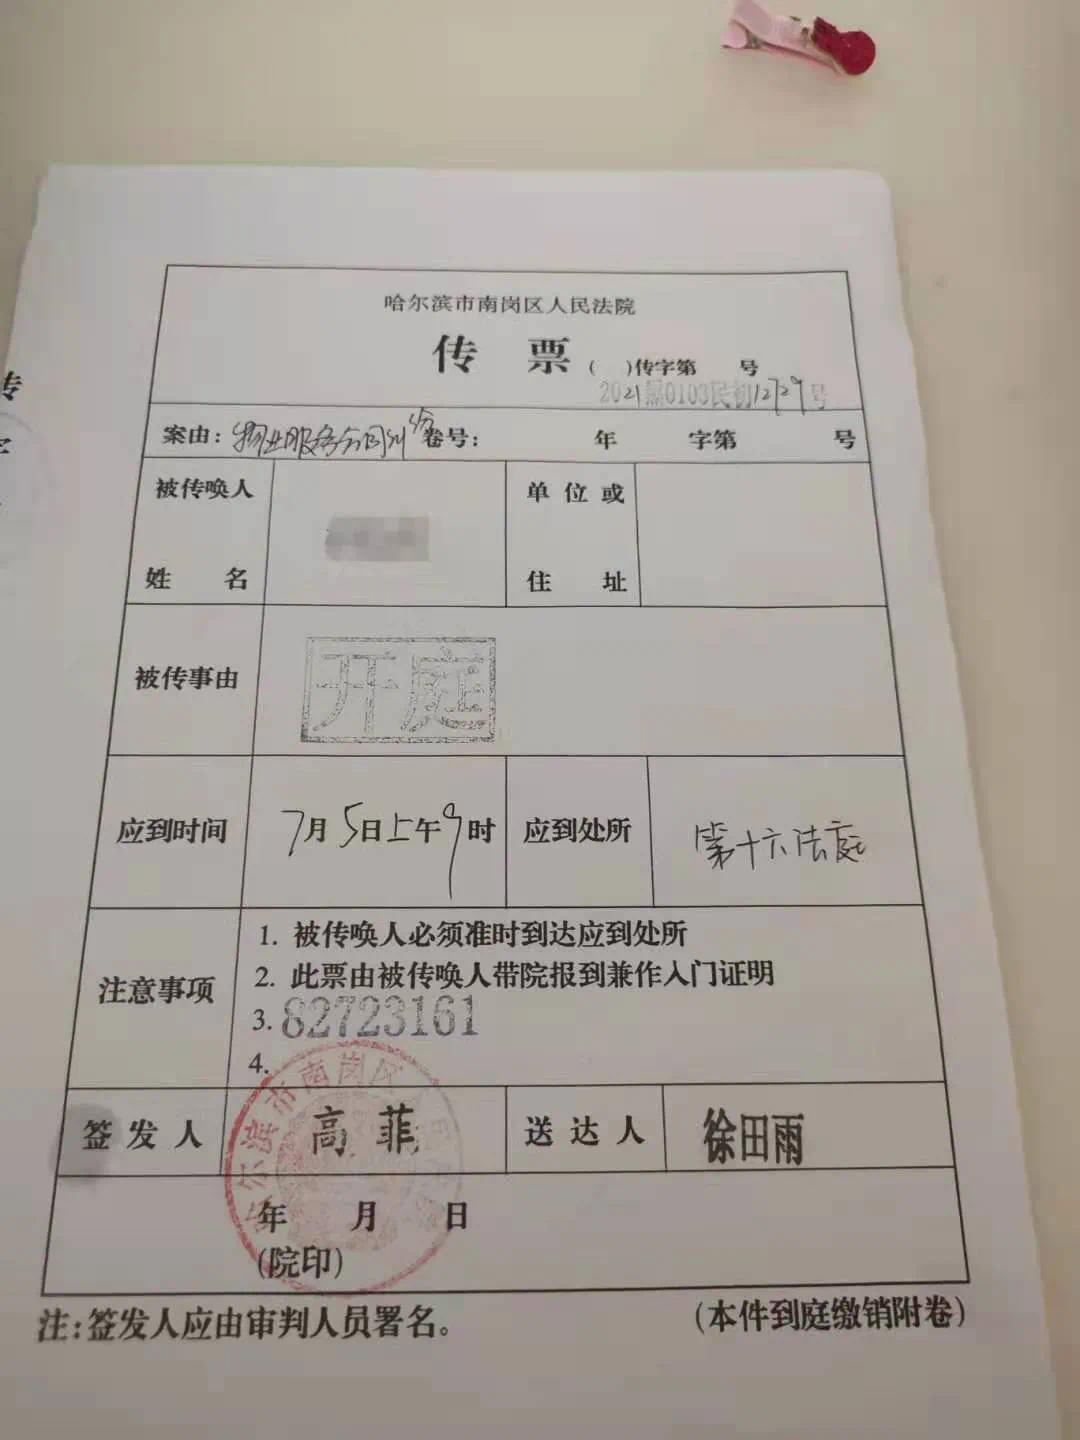 哈尔滨市南岗区人民法院
传 票 ( )传字第 号
2021黑0103民初12729号
案由: 物业服务合同纠纷 卷号: 年 字第 号
被传唤人
姓 名
单 位 或
住 址
被传事由
开庭
应到时间
7月5日上午9时
应到处所
第十六法庭
注意事项
1. 被传唤人必须准时到达应到处所
2. 此票由被传唤人带院报到兼作入门证明
3. 82723161
4.
签 发 人
高 菲
送 达 人
徐田雨
年 月 日
(院印)
注:签发人应由审判人员署名。
(本件到庭缴销附卷)